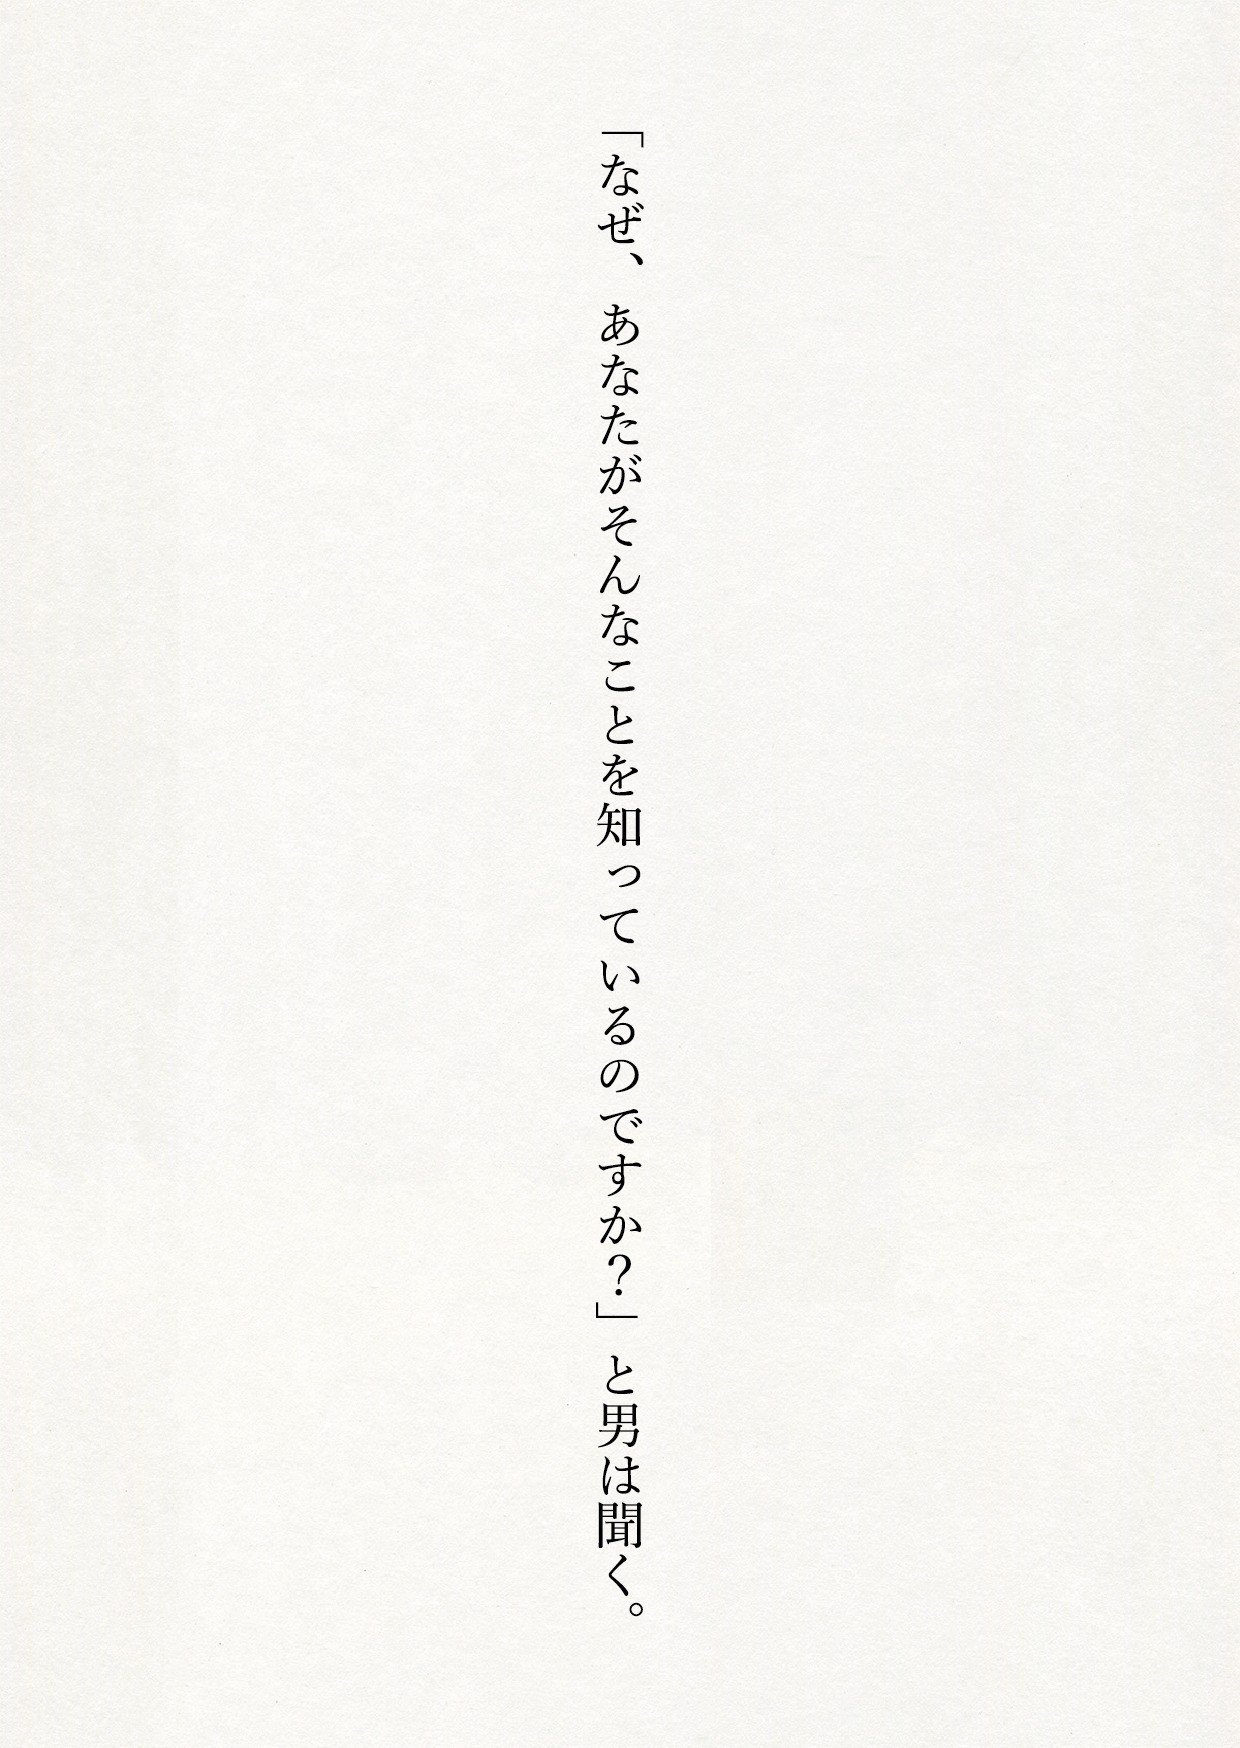 「なぜ、あなたがそんなことを知っているのですか？」と男は聞く。